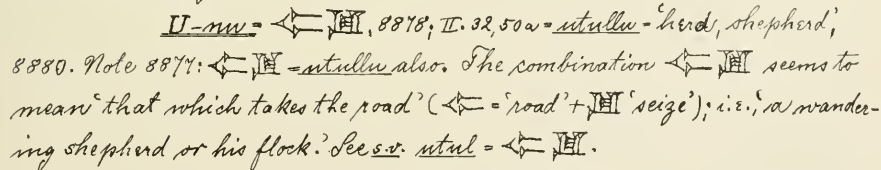 U-nu = , 8878; II. 32, 50a = utullu = 'herd, shepherd',
8880. Note 8877: = utullu also. The combination seems to
mean 'that which takes the road' ( = 'road' + 'seize'); i.e., 'a wander-
ing shepherd or his flock.' See s.v. utul = .